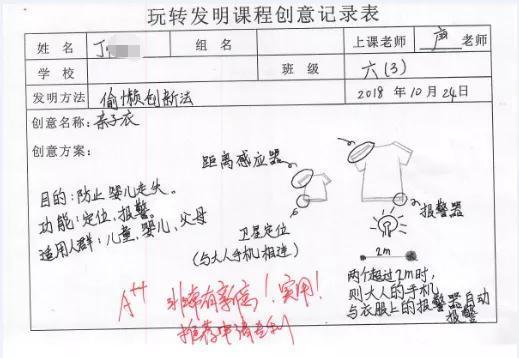 玩转发明课程创意记录表
姓名 丁 组名 上课老师 卢老师
学校 班级 六(3)
发明方法 偷懒创新法 2018年10月24日
创意名称: 亲子衣
创意方案:
距离感应器
目的:防止婴儿走失。
功能:定位、报警。
适用人群:儿童、婴儿、父母
报警器
卫星定位
(与大人手机相连)
2m
两个超过2m时,
则大人的手机
与衣服上的报警器自动
报警
A++ 非常有新意!实用!
推荐申请专利